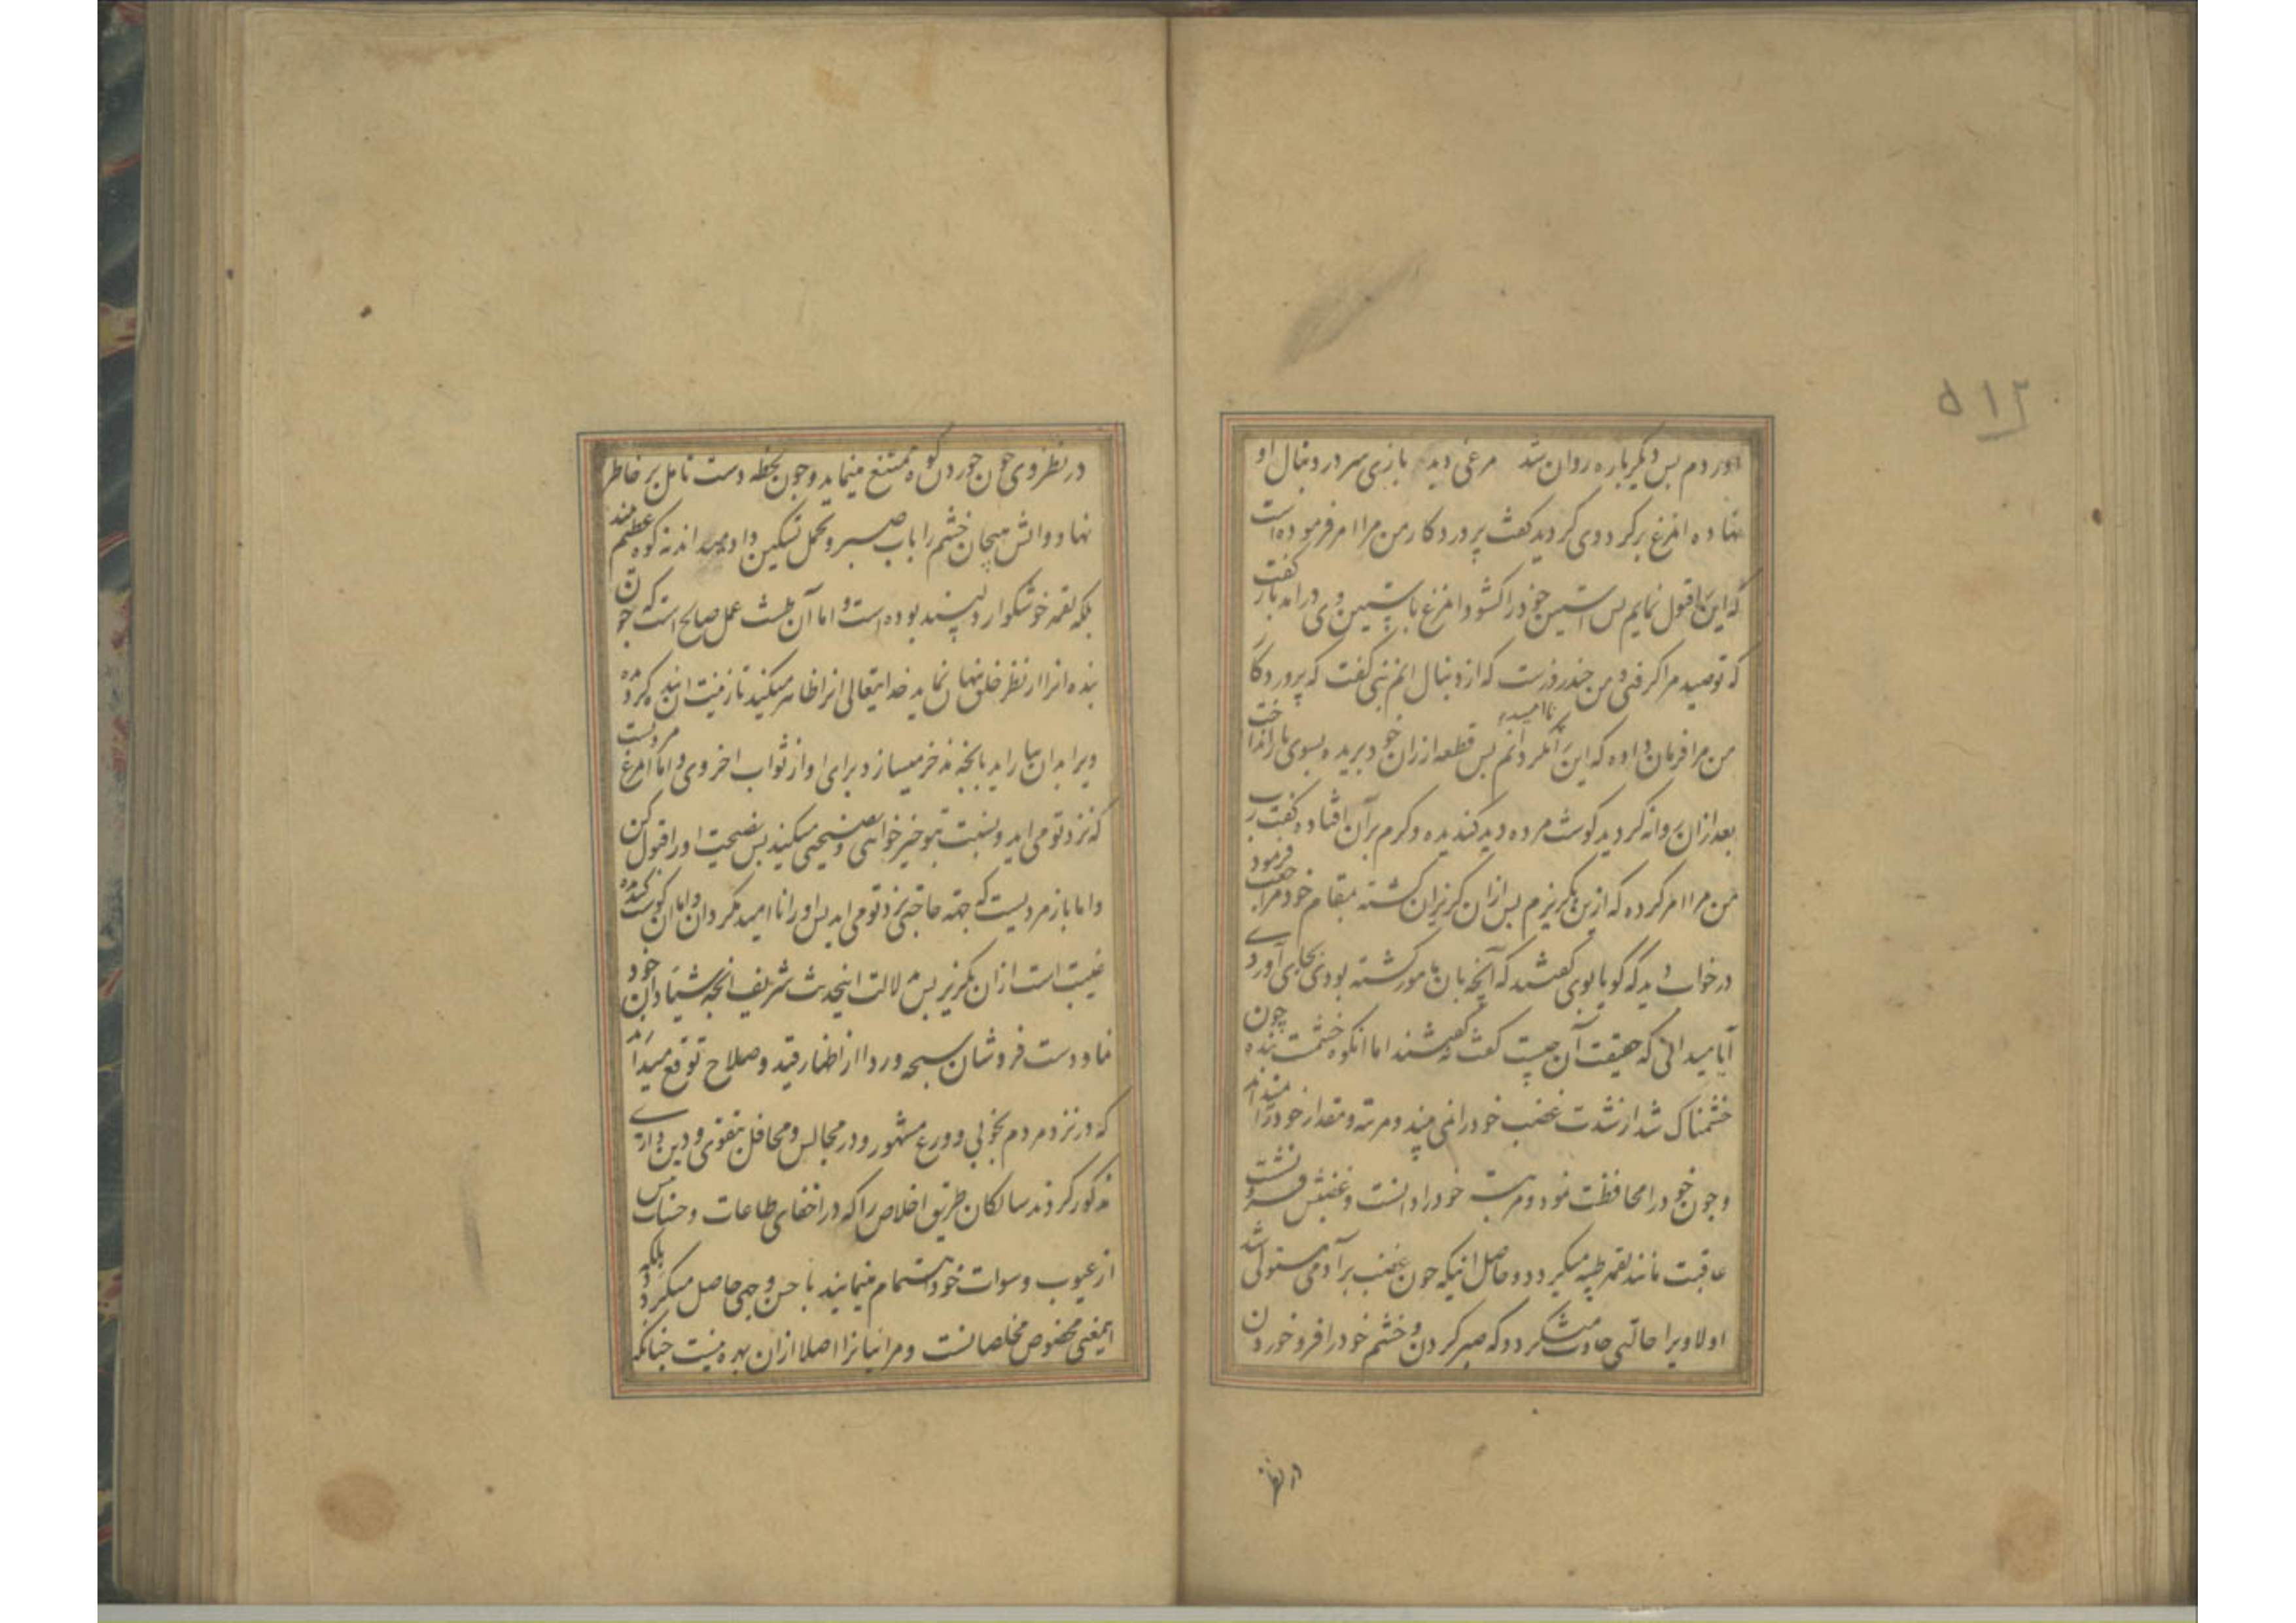 ۵۱۴
آوردم بس دیگر باره روان شد مرغی دید بازی سر در دنبال او
نهاده انمرغ بر کرد وی کردید کفت پروردکار من مرا امر فرموده است
که این را قبول نمایم بس استین خود را کشود انمرغ باستین وی در امد باز کفت
که تو صید مرا کرفتی و من چند روزست که از دنبال انم نبی کفت که پروردکار
من مرا فرمان داده که این را ناامید نکردانم بس قطعه از ران خود برید و بسوی باز انداخت
بعد ازان روانه کردید کوشت مرده دید کندیده و کرم بر آن افتاده کفت رب
من مرا امر کرده که ازین بکریزم بس ازان کریزان کشته بمقام خود مراجعت فرمود
در خواب دید که کویا بوی کفتند که آنچه بان مامور کشته بودی بجای آوردی
آیا میدانی که حقیقت آن چیست کفت نه کفتند اما انکوه خشمت بنده چون
خشمناک شد از شدت غضب خود را نمی بیند و مرتبه و مقدار خود را نمیداند
و چون خود را محافظت نمود و مرتبت خود را دانست و غضبش فرو نشت
عاقبت مانند لقمه طیبه میکردد و حاصل انیکه چون غضب بر آدمی مستولی شد
اولا ویرا حالتی حادث میکردد که صبر کردن و خشم خود را فرو خوردن
در نظر
در نظر وی چون خوردن کوه ممتنع مینماید و چون لحظه دست تامل بر خاطر
نهاد و اتش هیجان خشم را باب صبر و تحمل تسکین داد میداند نه کوه عظیم مند
بلکه لقمه خوشکوار دلپسند بوده است و اما آن طشت عمل صالح است که چون
بنده انرا از نظر خلق پنهان نماید خدایتعالی انرا ظاهر میکند تا زینت ان بنده کرده
ویرا بدان بیاراید بانچه ذخر میسازد برای او از ثواب اخروی و اما انمرغ مردیست
که نزد تو می اید و نسبت بتو خیر خواهی و نصیحتی میکند بس نصیحت اورا قبول کن
و اما باز مردیست که جهته حاجتی نزد تو می اید بس اورا ناامید مکردان و اما ان کوشت کنده
غیبت است ازان بکریز بس دلالت اینحدیث شریف انچه شیادان خود
نما و دست فروشان سبحه و ردا از اظهار قید و صلاح توقع میدارند
که در نزد مردم بخوبی و ورع مشهور و در مجالس و محافل بتقوی و دین داری
مذکور کردند سالکان طریق اخلاص را که در اخفای طاعات و حسنات بس
از عیوب و سوات خود اهتمام مینمایند با حسن وجهی حاصل میکردد بلکه
اینمعنی مخصوص مخلصانست و مرائیانرا اصلا ازان بهره نیست چنانکه